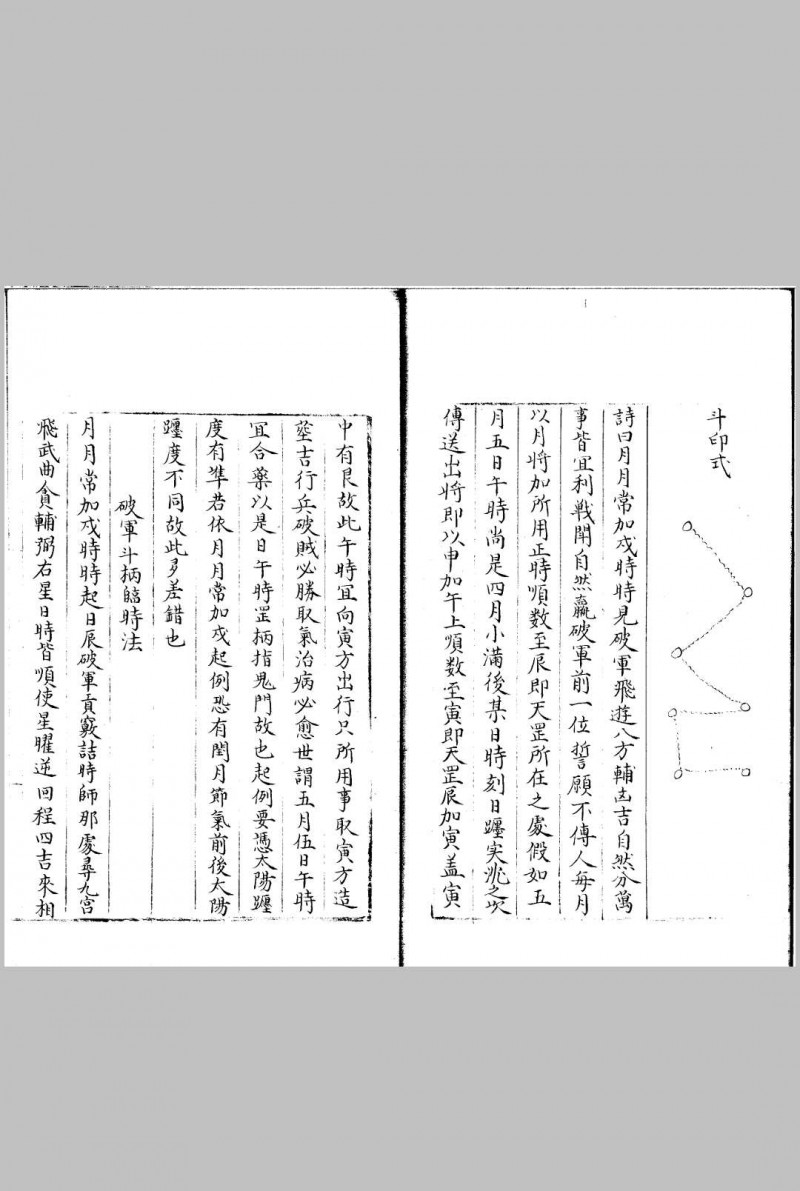 斗印式
詩曰月月常加戌時時見破軍飛遊八方輔凶吉自然分萬
事皆宜利戰鬪自然贏破軍前一位誓願不傳人每月
以月將加所用正時順数至辰即天罡所在之處假如五
月五日午時尚是四月小滿後某日時刻日躔实沈之次
傳送出將即以申加午上順数至寅即天罡辰加寅盖寅
中有艮故此午時宜向寅方出行只所用事取寅方造
塟吉行兵破賊必勝取氣治病必愈世謂五月伍日午時
宜合藥以是日午時罡柄指鬼門故也起例要憑太陽躔
度有凖若依月月常加戌起例恐有閏月節氣前後太陽
躔度不同故此多差錯也
破軍斗柄臨時法
月月常加戌時時起日辰破軍貢竅詰時師那處尋九宮
飛武曲貪輔弼右星日時皆順使星曜逆回程四吉來相